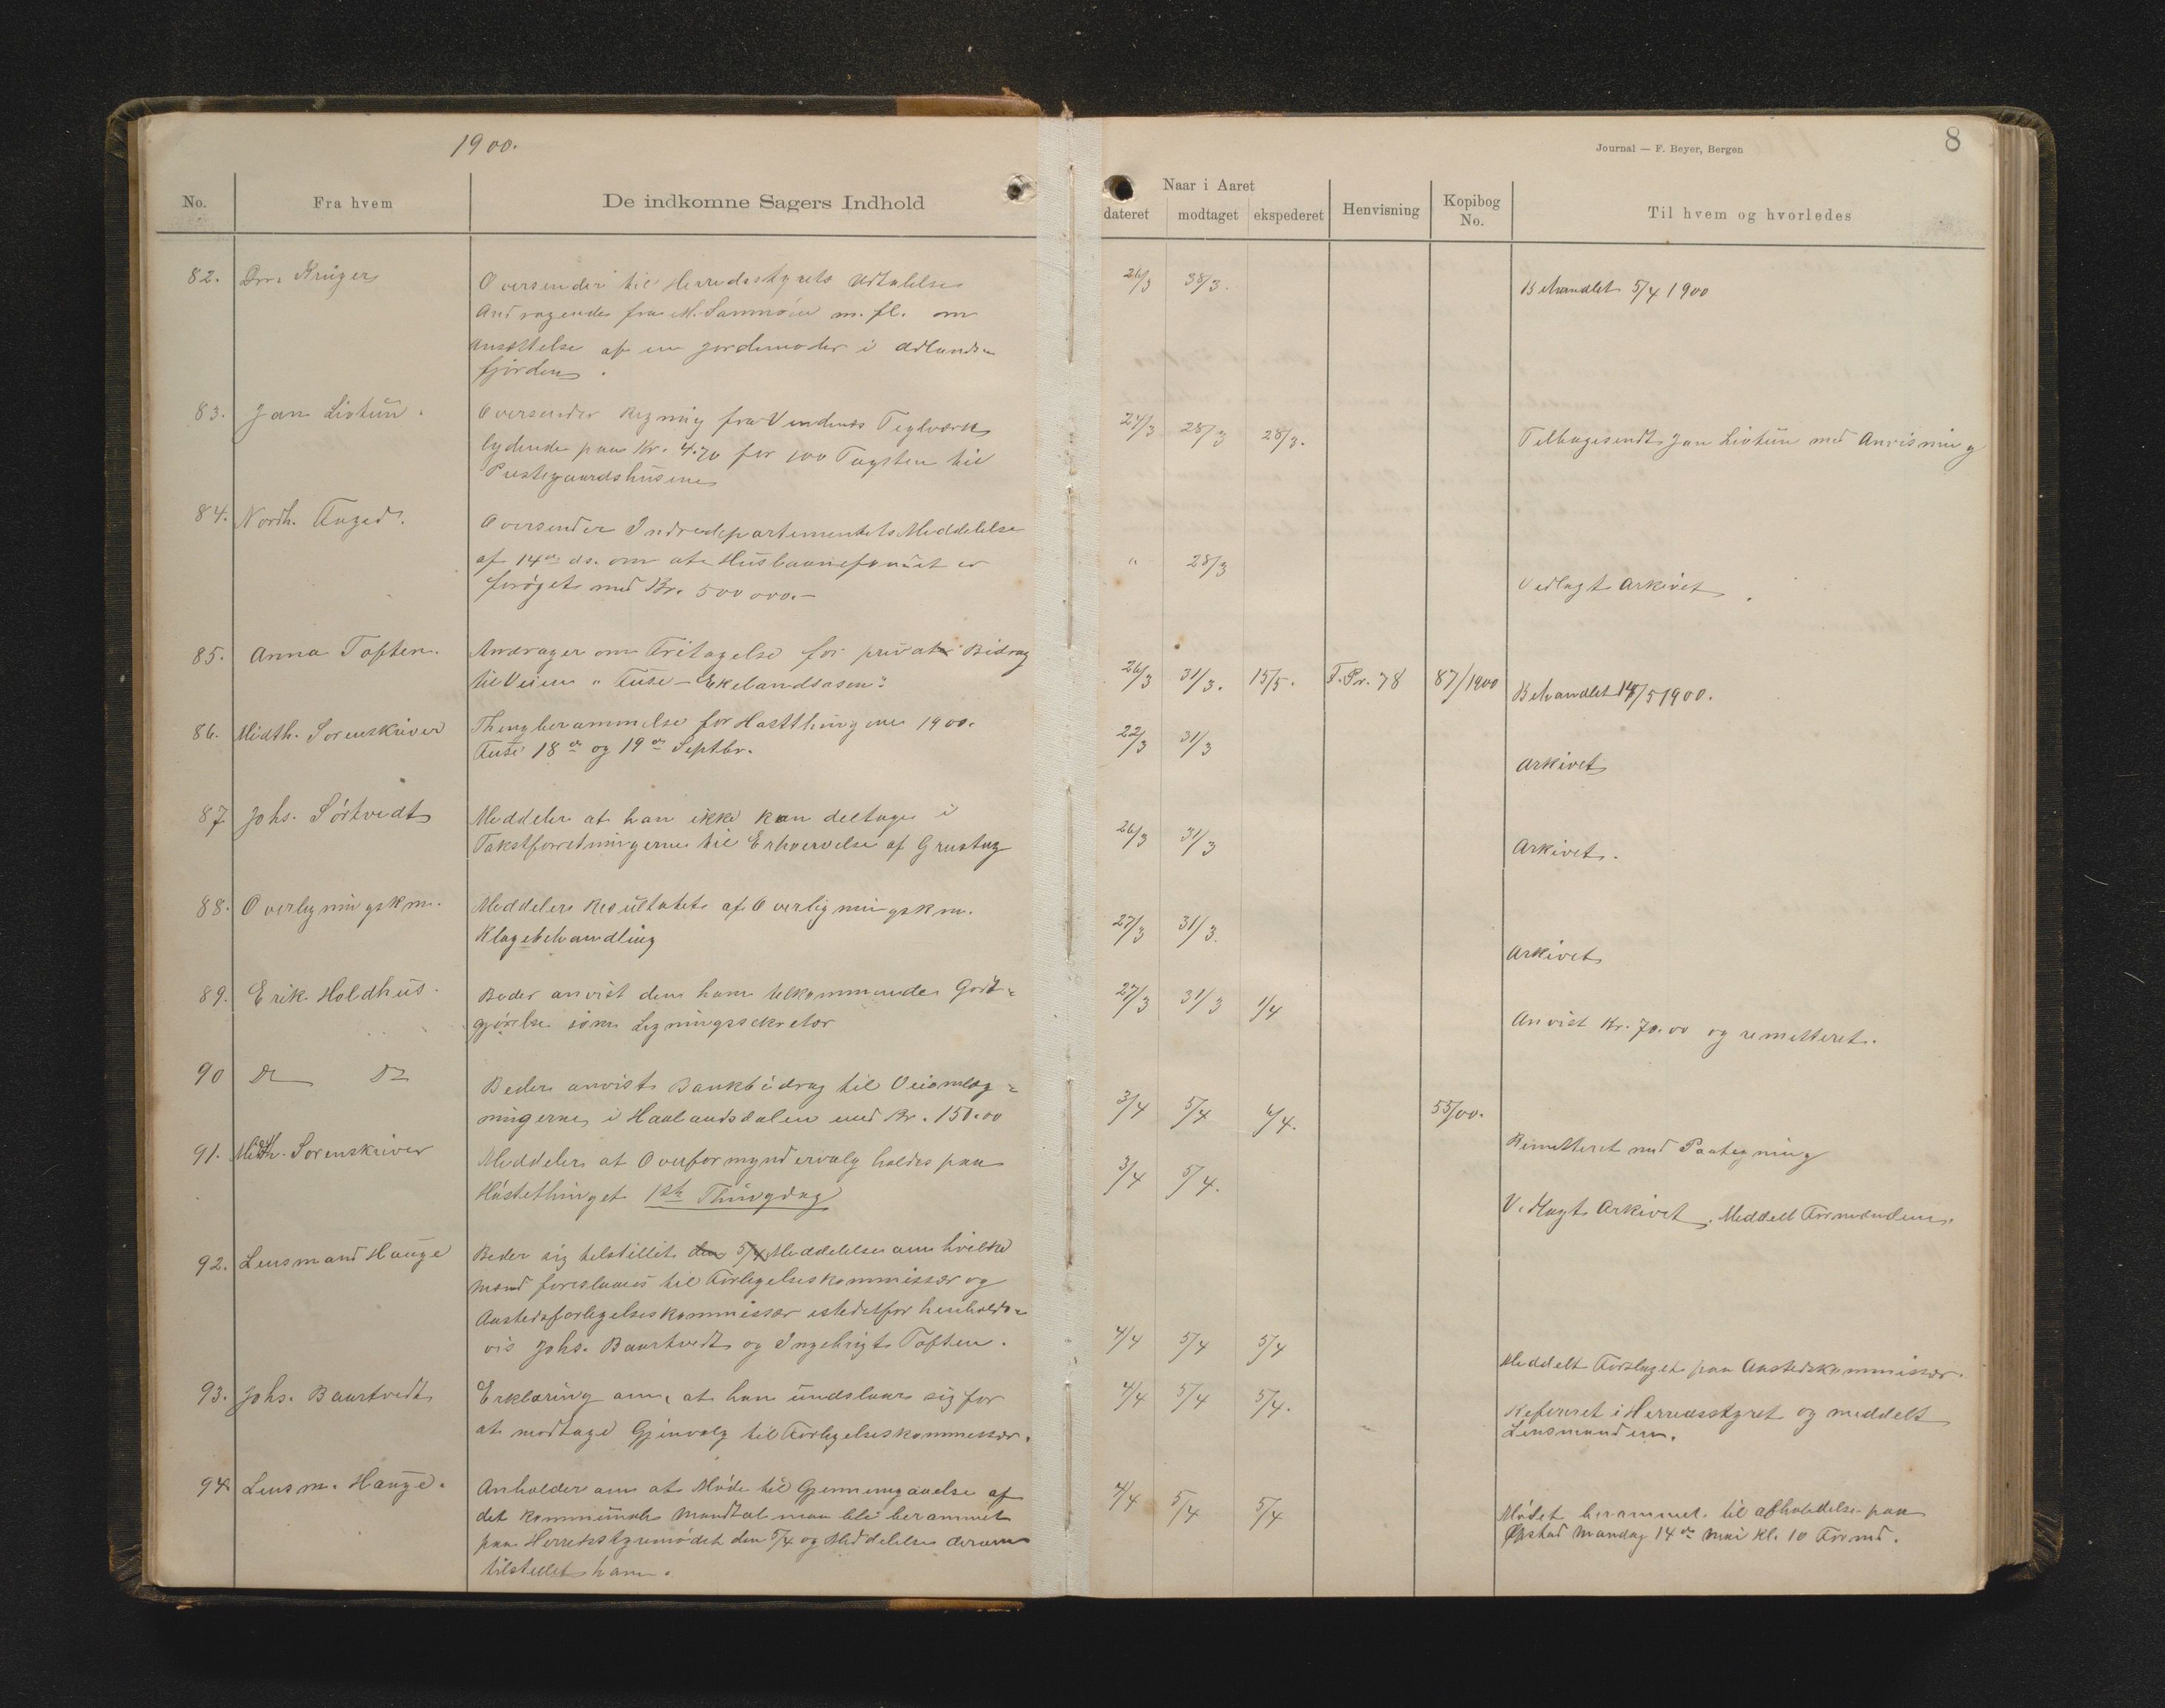 1900.
Journal — F. Beyer, Bergen
8
No.
Fra hvem
De indkomne Sagers Indhold
Naar i Aaret
dateret
modtaget
ekspederet
Henvisning
Kopibog
No.
Til hvem og hvorledes
82. Krüger
Oversender til Herredsstyrets Udtalelse
Andragende fra M. Samnöen m. fl. om
Ansættelse af en Jordemoder i Adlands-
fjorden.
26/3 38/3.
Behandlet 5/4 1900
83. Jan Livtün.
Oversender Regning fra Vindenes Teglværk
lydende paa Kr. 4.70 for 100 Tagsten til
Prestegaardshusene
24/3 28/3 28/3.
Tilbagesendt Jan Livtün med Anvisning
84. Nordh. Foged.
Oversender Indredepartementets Meddelelse
af 14de ds. om at Husbannefondet er
forøget med Kr. 500 000.-
" 28/3
Vedlagt Arkivet.
85. Anna Toften.
Andrager om Fritagelse for privat Bidrag
til Veien "Fuse - Ekelandsosen".
26/3 31/3. 15/5. F. Pr. 78 87/1900
Behandlet 14/5 1900.
86. Midth. Sorenskriver
Thingberammelse for Hostthingene 1900.
Fuse 18de og 19de Septbr.
22/3 31/3
Arkivet
87 Johs. Sörtvedt
Meddeler at han ikke kan deltage i
Takstforretningerne til Erhvervelse af Grustag
26/3 31/3
Arkivet.
88. Overligningskm.
Meddeler Resultatet af Overligningskm.
Klagebehandling
27/3 31/3.
Arkivet
89. Erik Holdhus.
Beder anvist den ham tilkommende Godt-
gjörelse som Ligningssekretær
27/3 31/3 1/4
Anvist Kr. 70.00 og remitteret.
90 Do Do
Beder anvist Bankbidrag til Veiomlæg-
ningerne i Haalandsdalen med Kr. 150.00
3/4 5/4 6/4. 55/00.
Remitteret med Paategning
91. Midth. Sorenskriver
Meddeler at Overformyndervalg holdes paa
Höstethinget 1ste Thingdag
3/4 5/4.
Vedlagt Arkivet. Meddelt Formanden.
92. Lensmand Hauge
Beder sig tilstillet den 5/4 Meddelelse om hvilke
Mænd foreslaaes til Forligelseskommissær og
Aastedsforligelseskommissær istedetfor henholds-
vis Johs. Baartvedt og Ingebrigt Toften.
4/4 5/4 5/4
Meddelt Forslaget paa Aastedskommissær.
93. Johs. Baartvedt
Erklæring om, at han undslaar sig for
at modtage Gjenvalg til Forligelseskommissær.
4/4 5/4 5/4.
Refereret i Herredsstyret og meddelt
Lensmanden.
94 Lensm. Hauge.
Anholder om at Möde til Gjennemgaaelse af
det kommunale Mandtal maa bli berammet
paa Herredsstyremödet den 5/4 og Meddelelse derom
tilstillet ham.
4/4 5/4 5/4
Mödet berammet til afholdelse paa
Øpstad Mandag 14de Mai Kl. 10 Formd.